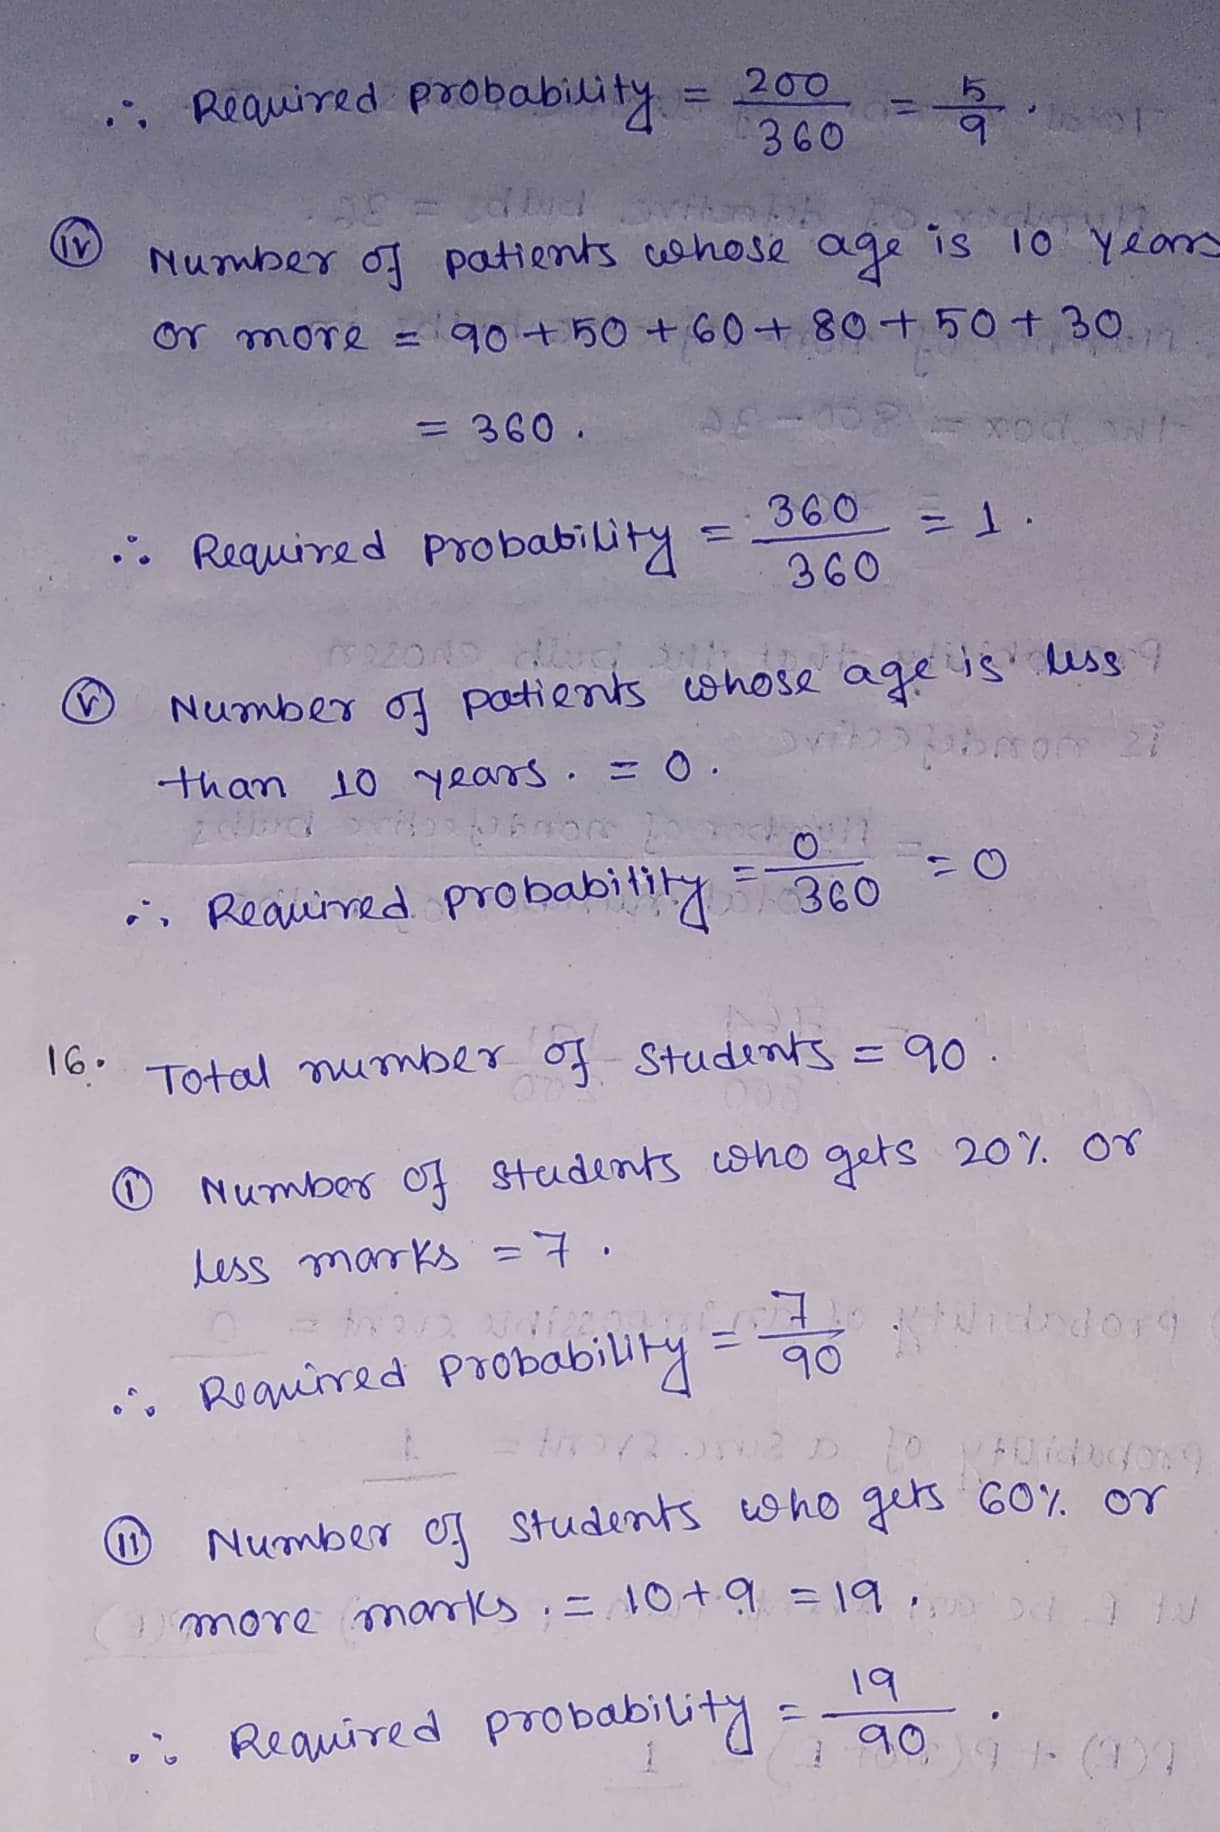 ∴ Required probability = 200/360 = 5/9.
(iv) Number of patients whose age is 10 years
or more = 90 + 50 + 60 + 80 + 50 + 30
= 360.
∴ Required probability = 360/360 = 1.
(v) Number of patients whose age is less
than 10 years. = 0.
∴ Required probability = 0/360 = 0
16. Total number of students = 90.
(i) Number of students who gets 20% or
less marks = 7.
∴ Required probability = 7/90.
(ii) Number of students who gets 60% or
more marks. = 10 + 9 = 19.
∴ Required probability = 19/90.